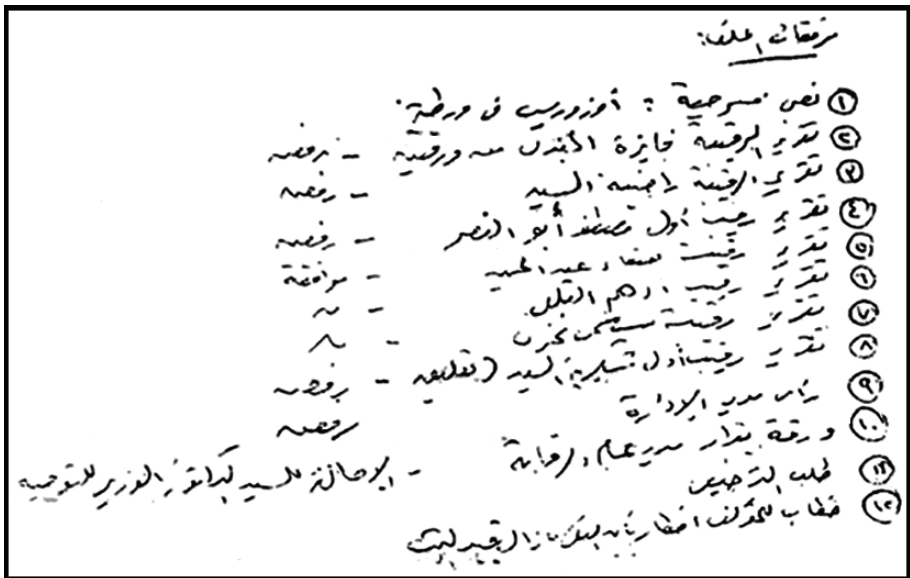 مرفقات الملف:
① نص مسرحية : أوزوريس في ورطة.
② تقرير الرقيبة فايزة الجندى من ورقتين - ترفضه
③ تقرير الرقيبة راضية السيد - رفضه
④ تقرير رقيب أول مصطفى أبو النصر - رفضه
⑤ تقرير رقيبة صفاء عبد الحميد - موافقة
⑥ تقرير رقيب ادهم - "
⑦ تقرير رقيبة - "
⑧ تقرير رقيب أول شكرية السيد - برفضه
⑨ رأى مدير الإدارة رفضه
⑩ ورقة بقرار مدير عام الرقابة - الإحالة للسيد الدكتور الوزير للتوجيه
⑪ طلب الترخيص
⑫ خطاب للمؤلف اخطار بأن